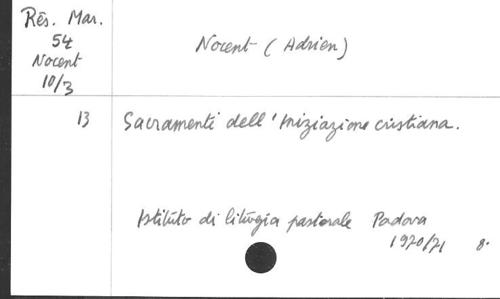 Rés. Mar.
54
Nocent
10/3
Nocent (Adrien)
13
Sacramenti dell'Iniziazione cristiana.
Istituto di liturgia pastorale Padova
1970/71 8°